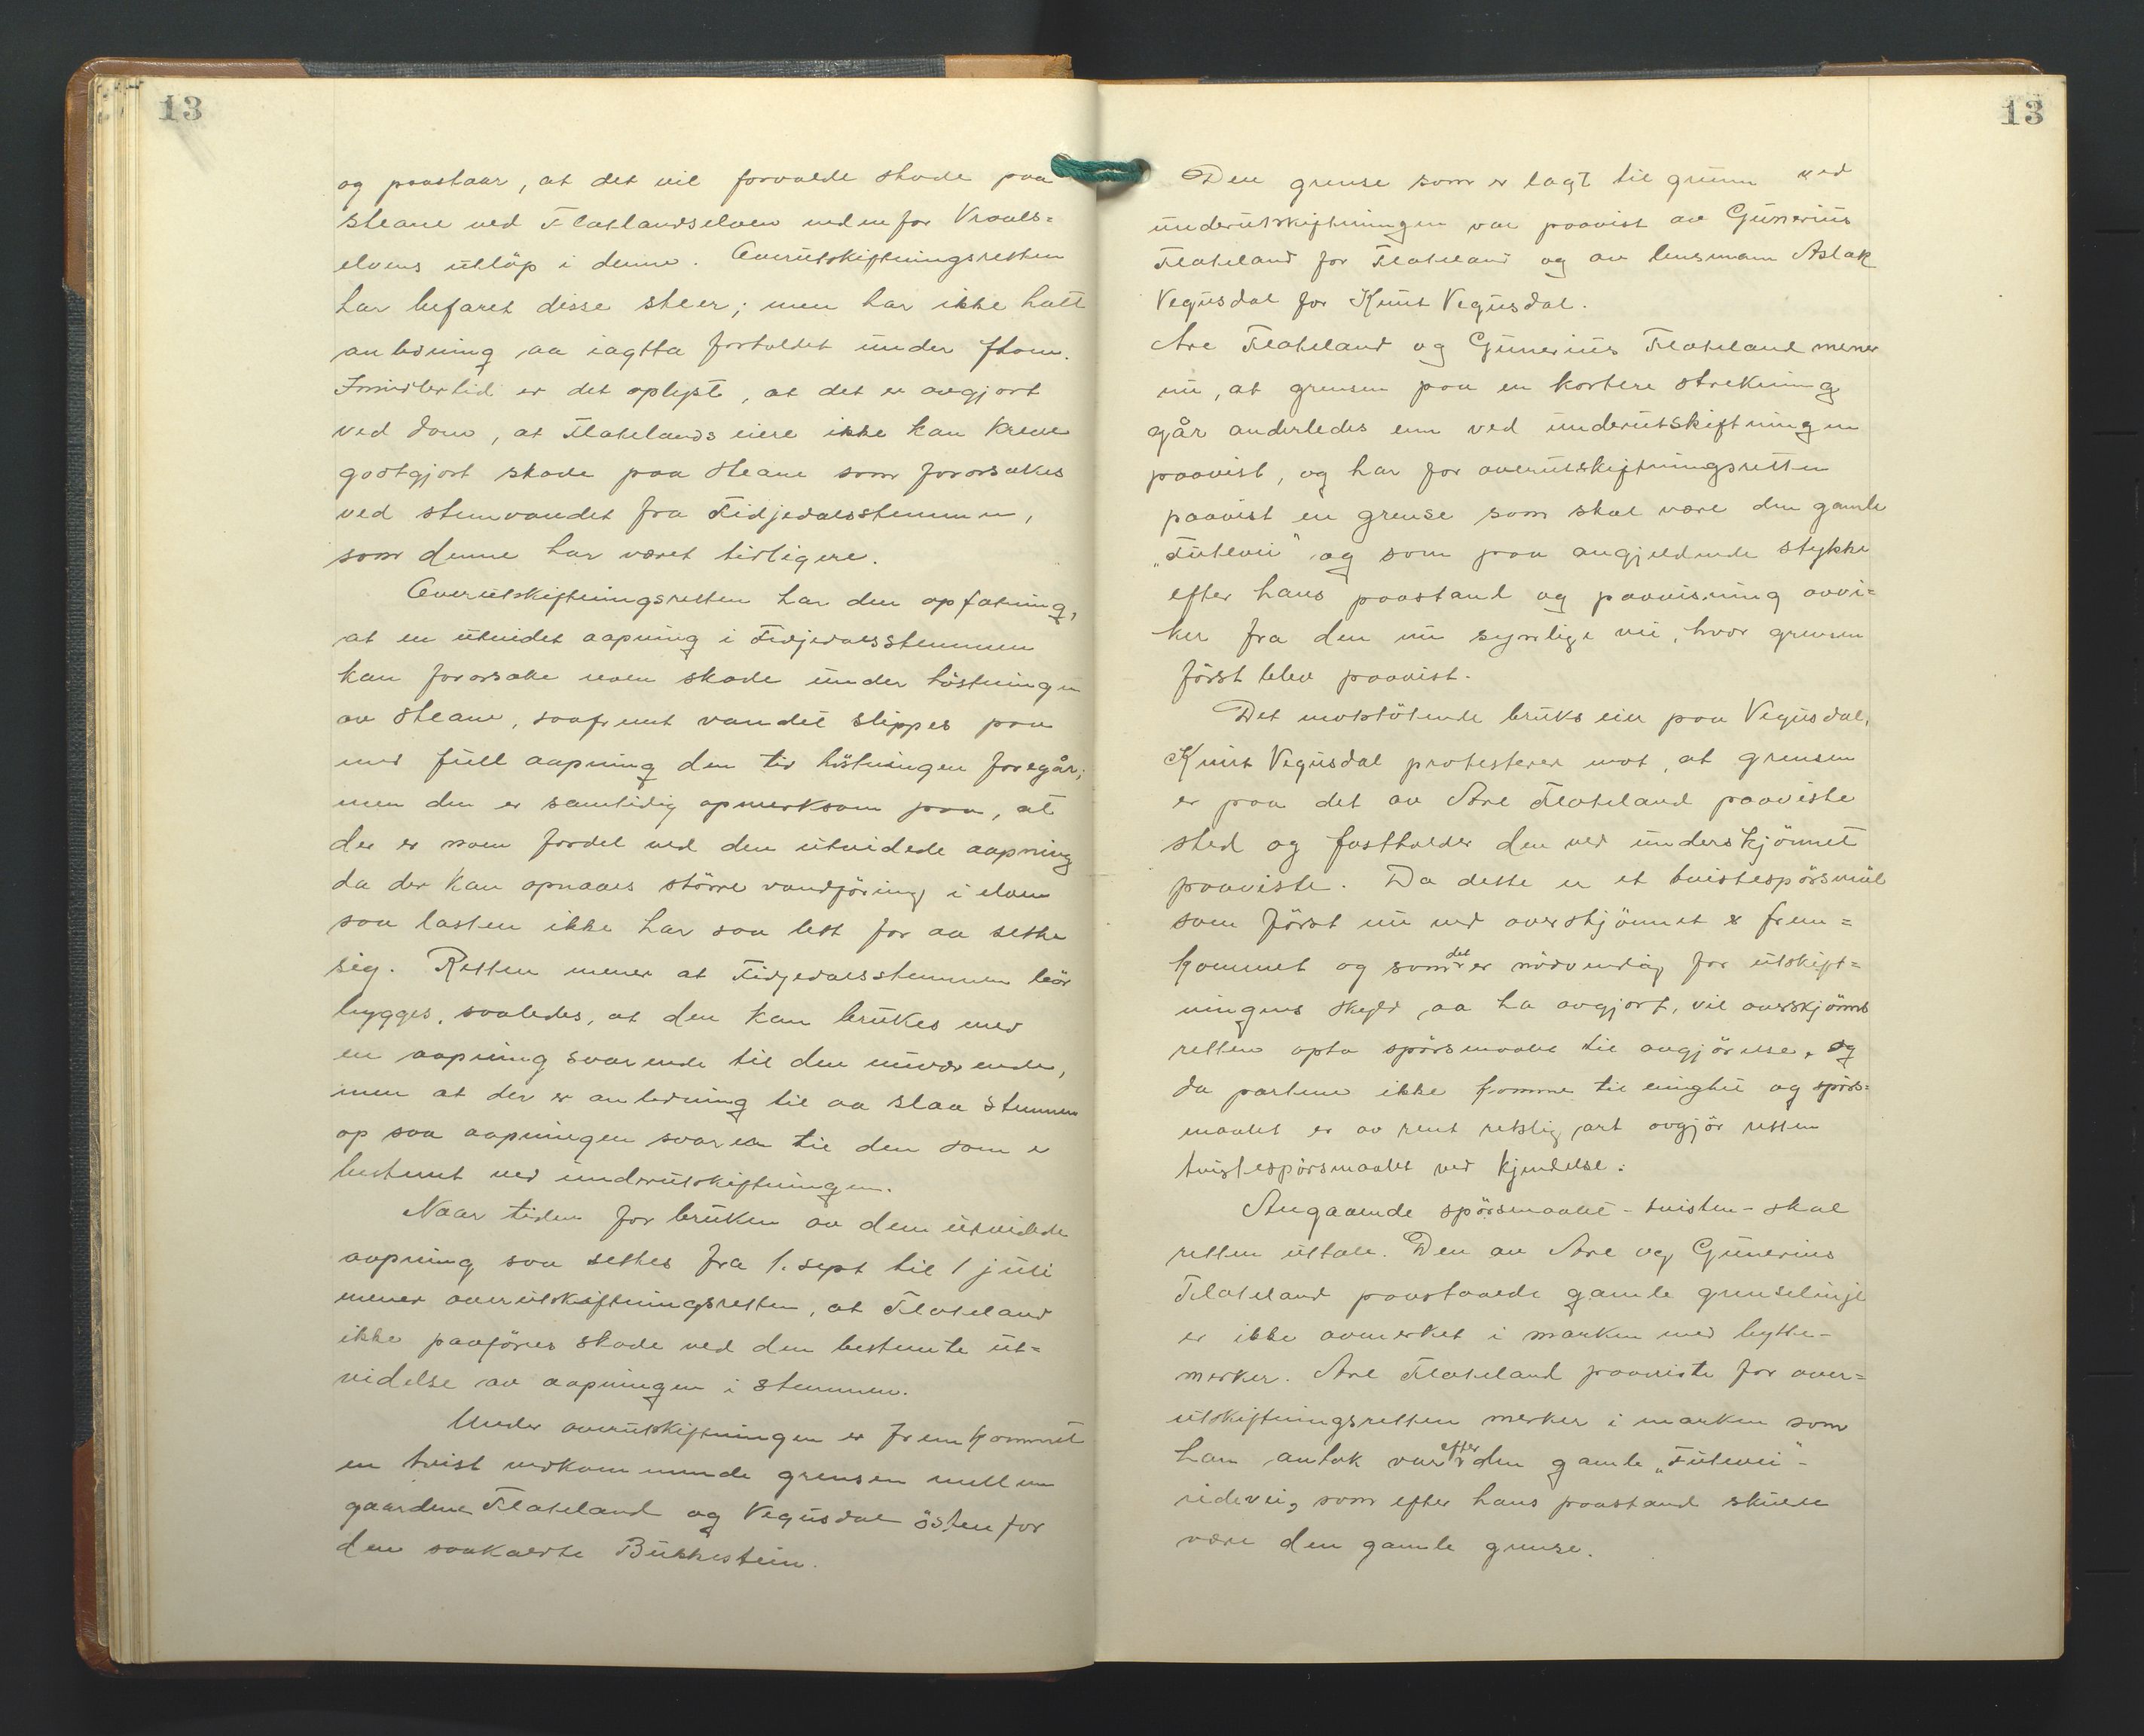 13
og paastaar, at det vil forvolde skade paa
sleane ved Flatlandselven nedenfor Vraals=
elvens utløp i denne. Overutskiftningsretten
har befaret disse sleer; men har ikke hatt
anledning aa iagtta forholdet under flom.
Imidlertid er det oplyst, at det er avgjort
ved dom, at Flatelands eiere ikke kan kreve
godtgjort skade paa sleane som fororsakes
ved stemvandet fra Fidjedalsstemmen,
som denne har været tidligere.
Overutskiftningsretten har den opfatning,
at en utvidet aapning i Fidjedalsstemmen
kan fororsake noen skade under høstningen
av sleane, saafremt vandet slippes paa
med full aapning den tid høstningen foregår;
men den er samtidig opmerksom paa, at
der er noen fordel ved den utvidede aapning
da der kan opnaaes større vandføring i elven
saa lasten ikke har saa lett for aa sette
sig. Retten mener at Fidjedalsstemmen bør
bygges, saaledes, at den kan brukes med
en aapning svarende til den nuværende,
men at der er anledning til aa slaa stemmen
op saa aapningen svarer til den som er
bestemt ved underutskiftningen.
Naar tiden for bruken av den utvidede
aapning saa settes fra 1. sept til 1 juli
mener overutskiftningsretten, at Flateland
ikke paaføres skade ved den bestemte ut=
videlse av aapningen i stemmen.
Under overutskiftningen er fremkommet
en tvist vedkommende grensen mellem
gaardene Flateland og Vegusdal østenfor
den saakaldte Bukkestein.
13
Den grense som er lagt til grunn ved
underutskiftningen var paavist av Gunerius
Flateland for Flateland og av lensmann Aslak
Vegusdal for Knut Vegusdal.
Are Flateland og Gunerius Flateland mener
nu, at grensen paa en kortere strekning
går anderledes enn ved underutskiftningen
paavist, og har for overutskiftningsretten
paavist en grense som skal være den gamle
„Futevei" og som paa angjeldende stykke
efter hans paastand og paavisning avvi=
ker fra den nu synlige vei, hvor grensen
først blev paavist.
Det motstøtende bruks eier paa Vegusdal,
Knut Vegusdal protesterer mot, at grensen
er paa det av Are Flateland paaviste
sted og fastholder den ved underskjønnet
paaviste. Da dette er et tvistespørsmål
som først nu ved overskjønnet er frem=
kommet og som det er nødvendig for utskift=
ningens skyld aa ha avgjort, vil overskjønns
retten opta spørsmaalet til avgjørelse, og
da partene ikke kommer til enighet og spørs=
maalet er av rent rettslig art avgjør retten
tvistespørsmaalet ved kjendelse:
Angaaende spørsmaalet - tvisten - skal
retten uttale. Den av Are og Gunerius
Flateland paastaaede gamle grenselinje
er ikke avmerket i marken med bytte-
merker. Are Flateland paaviste for over=
utskiftningsretten merker i marken som
han antok var efter den gamle „Futevei"-
ridevei, som efter hans paastand skulde
være den gamle grense.